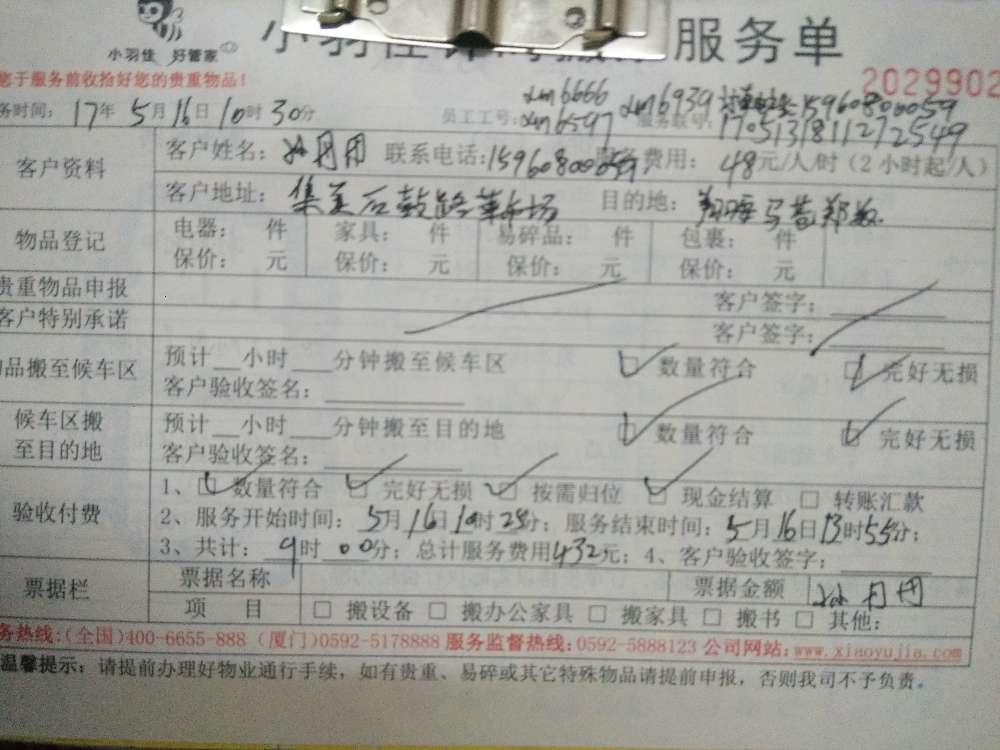 小羽佳 好管家
服务单
您于服务前收拾好您的贵重物品！
2029902
务时间：17年5月16日10时30分 员工工号：xm6666 xm6939 xm6597 15960800059
服务联号：1705131811272549
客户资料 客户姓名： 联系电话：15960800059 服务费用：48元/人/时（2小时起/人）
客户地址：集美后 场 目的地：
物品登记 电器： 件 家具： 件 易碎品： 件 包裹： 件
保价： 元 保价： 元 保价： 元 保价： 元
贵重物品申报 客户签字：
客户特别承诺 客户签字：
物品搬至候车区 预计__小时___分钟搬至候车区 ☑ 数量符合 ☑ 完好无损
客户验收签名：
候车区搬至目的地 预计__小时___分钟搬至目的地 ☑ 数量符合 ☑ 完好无损
客户验收签名：
验收付费 1、☑ 数量符合 ☑ 完好无损 ☑ 按需归位 ☑ 现金结算 □ 转账汇款
2、服务开始时间：5月16日10时25分；服务结束时间：5月16日13时55分；
3、共计：9时00分；总计服务费用432元；4、客户验收签字：
票据栏 票据名称 票据金额
项 目 □ 搬设备 □ 搬办公家具 □ 搬家具 □ 搬书 □ 其他：
务热线：(全国)400-6655-888 (厦门)0592-5178888 服务监督热线：0592-5888123 公司网站：www.xiaoyujia.com
温馨提示：请提前办理好物业通行手续，如有贵重、易碎或其它特殊物品请提前申报，否则我司不予负责。